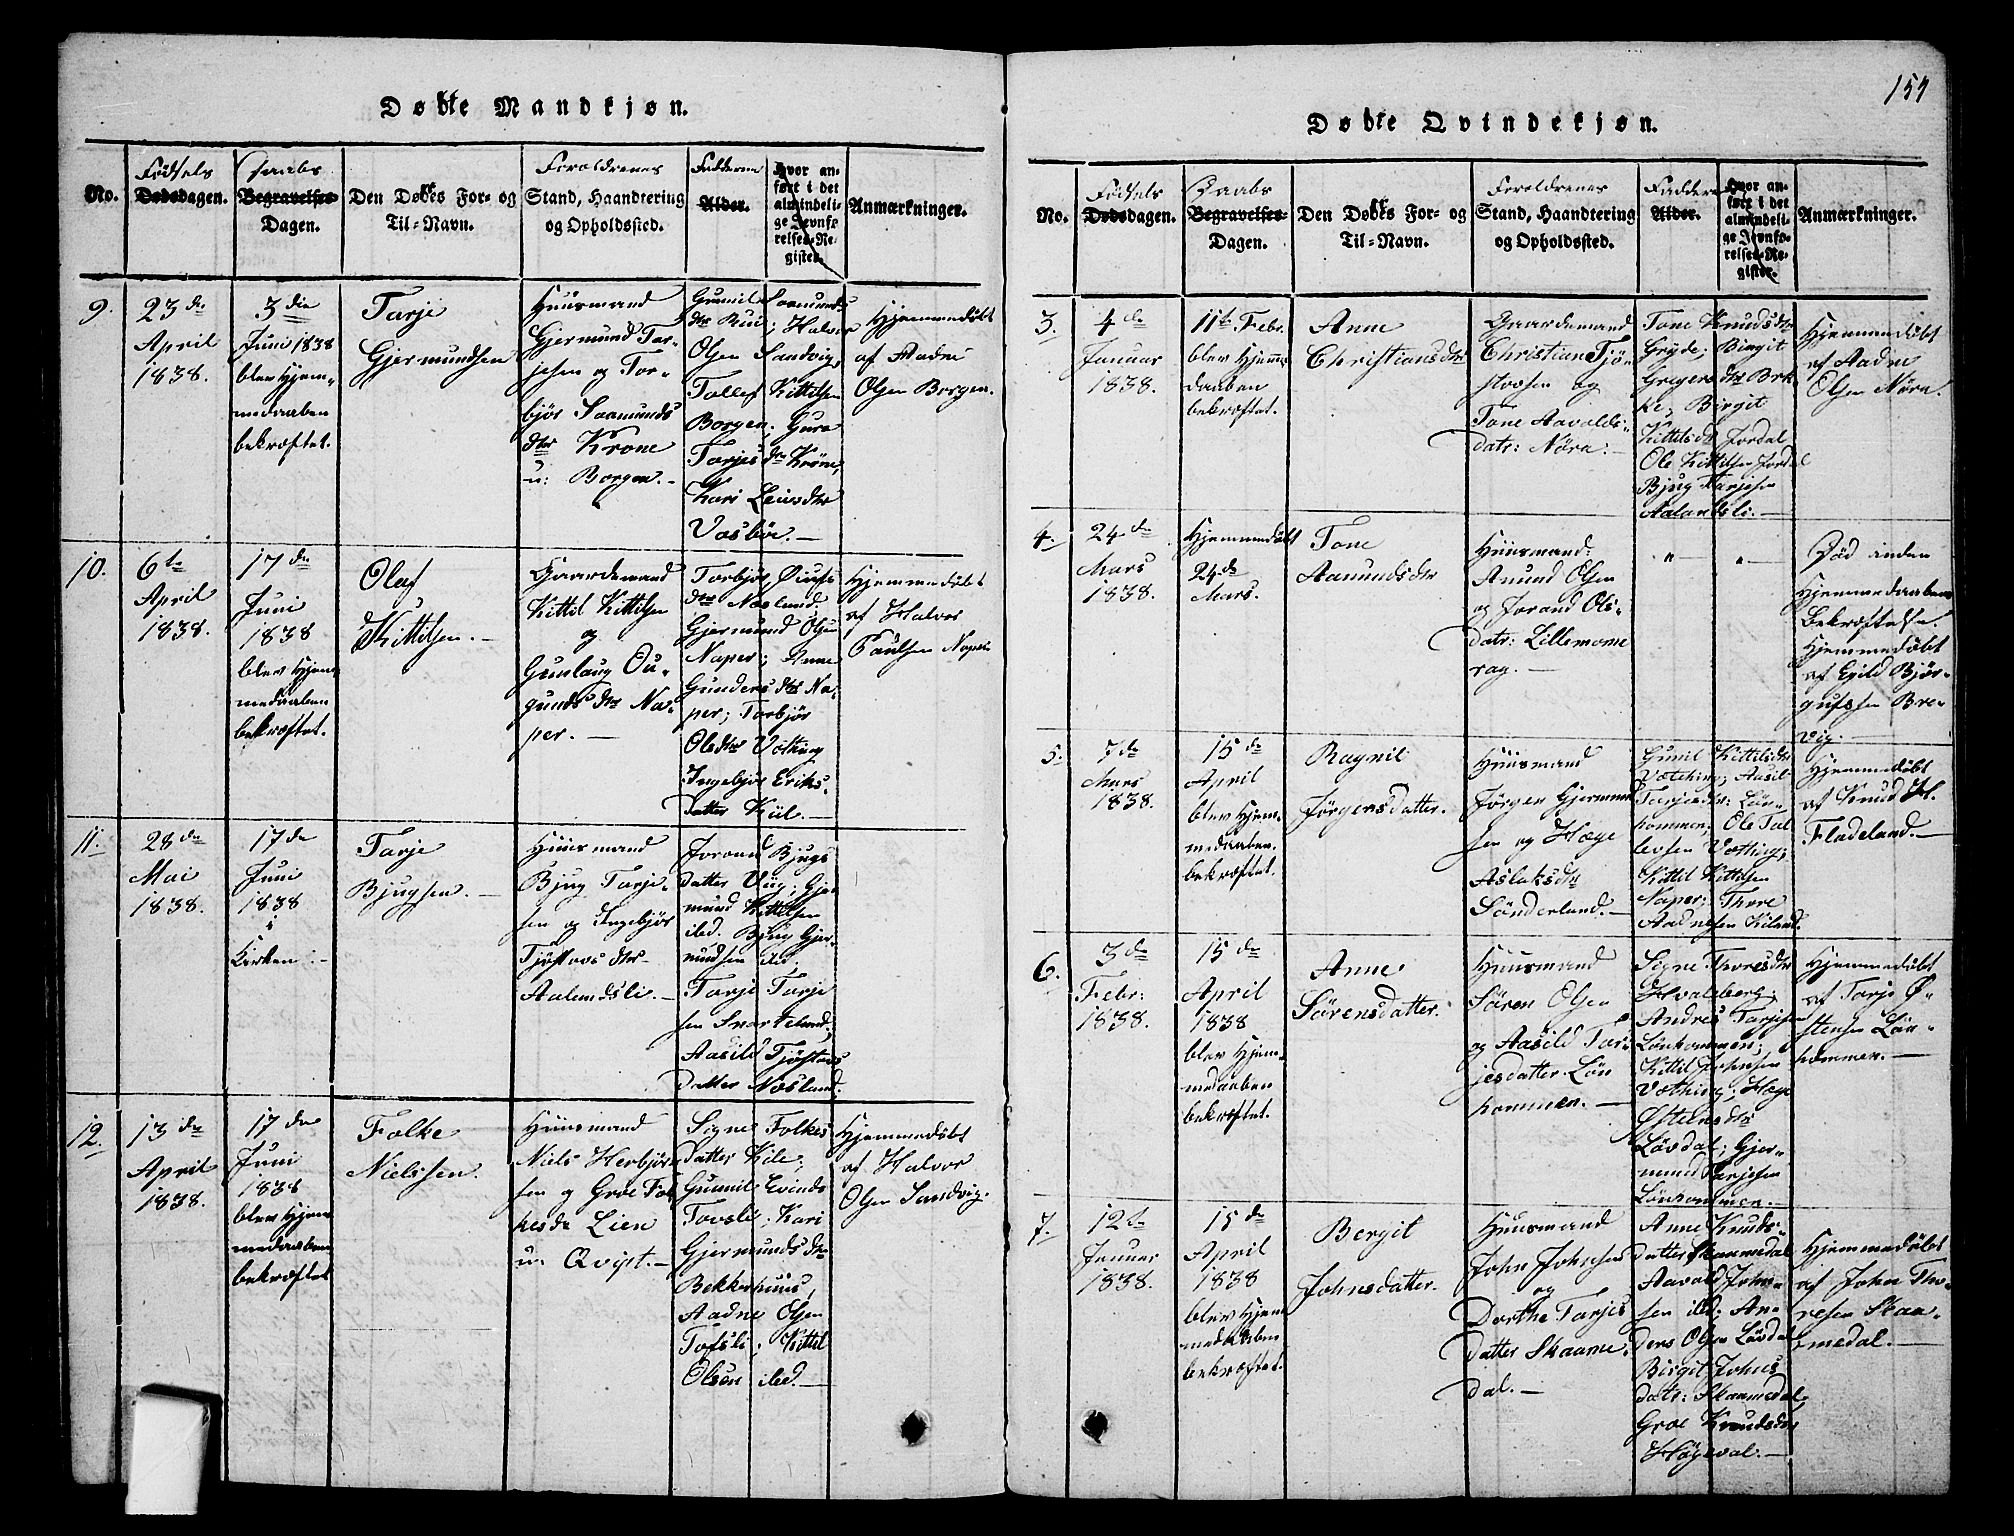 Døbte Mandkjøn.
Fødsels
Daabs
Forældrenes
Fadderne
No.
Dødsdagen.
Begravelses-
Dagen.
Den Døbtes For- og
Til-Navn.
Stand, Haandtering
og Opholdssted.
Alder.
Hvor an-
ført i det
almindeli-
ge Jevnfø-
relses-Re-
gister.
Anmærkninger.
9.
23de
April
1838.
3die
Juni 1838
blev Hjem-
medaaben
bekræftet.
Tarje
Gjermundsen
Huusmand
Gjermund Tar-
jesen og Tor-
bjør Saamunds
dtr Krone
u: Borgen.-
Gunnil Saamunds
dtr Bui; Halvor
Olsen Sandvig,
Tollef Kittilsen
Borgen; Gura
Tarjes dtr Krone,
Kari Leivsdtr
Vasbøe.-
Hjemmedøbt
af Aadne
Olsen Borgen.
10.
6te
April
1838.
17de
Juni
1838
blev Hjem
medaaben
bekræftet.
Olaf
Kittilsen.-
Gaardemand
Kittil Kittilsen
og
Gunlaug Ou-
gunds dtr Na-
per.-
Torbjør
dtr Næslund;
Gjermund Olsen
Naper; Anne
Gunders dtr Na-
per; Torbjør
Olsdtr Vøtting
Ingebjør Eriks-
datter Kiil.-
Hjemmedøbt
af Halvor
Paulsen Naper
11.
28de
Mai
1838.
17de
Juni
1838
i
Kirken.-
Tarje
Bjugsen.-
Huusmand
Bjug Tarje-
sen og Ingebjør
Tjøstovs dtr
Aalandsli.-
Jorand Bjugs
datter Viig; Gjer
mund Kittilsen
ibd. Bjug Gjer-
mundsen ibd.
Tarje Tarje
sen Snarteland,
Aasild Tjøstovs
datter Næsland.
12.
13de
April
1838.
17de
Juni
1838
blev Hjem
medaaben
bekræftet
Folke
Nielssen.
Huusmand
Niels Herbjør
sen og Groe Fol
kesdr Lien
u: Qvist.-
Signe Folkes
datter Kile;
Gunnil Evinds
Tovsli; Kari
Gjermunds dtr
Bekkerhuus,
Aadne Olsen
Tofsli; Kittil
Olsen ibd.-
Hjemmedøbt
af Halvor
Olsen Sandvig.
157
Døbte Qvindekjøn.
Fødsels
Daabs
Forældrenes
Faddere
No.
Dødsdagen.
Begravelses-
Dagen.
Den Døbtes For- og
Til-Navn.
Stand, Haandtering
og Opholdssted.
Alder.
Hvor an-
ført i det
almindeli-
ge Jevnfø-
relses-Re-
gister.
Anmærkninger.
3.
4de
Januar
1838.
11te Febr.
blev Hjemme
daaben
bekræftet.
Anne
Christiansdtr
Gaardemand
Christian Tjø-
stovsen og
Tone Aavalds-
datr: Nøra:-
Tone Knudsdtr
Gryde; Birgit
Grigers dtr Brk-
ke; Birgit
Kittilsdr Jordal
Ole Kittilsen Jordal
Bjug Tarjesen
Aalandsli.-
Hjemmedøbt
af Aadne
Olsen Nøra.
4.
24de
Mars
1838.
Hjemmedøbt
24de
Mars.
Tone
Aanundsdtr
Huusmand:
Anund Olsen
og Jorand Ols-
datr: Lillemone
rag.-
"- "-
Død inden
Hjemmedaabens
Bekræftelse.
Hjemmedøbt
af Egild Bjør-
gufssen Bre-
vig.-
5.
7de
Mars
1838.
15de
April
blev Hjem-
medaaben
bekræftet.
Ragnil
Jørgensdatter.
Huusmand
Jørgen Gjermund
sen og Hæge
Aslaksdtr
Sønderland.-
Gunil Kittilsdtr
Vøtting; Aasil
Tarjesdr: Løn-
kommen; Ole Tal
levsen Vøtting;
Kittil Kittilsen
Naper; Thore
Aadnesen Kiland.
Hjemmedøbt
af Knud
Fladeland.-
6.
3de
Febr:
1838.
15de
April
1838
blev Hjem-
medaaben
bekræftet.
Anne
Sørensdatter.
Huusmand
Søren Olsen
og Aasild Tar-
jesdatter Løn
kommen.-
Signe Thoresdtr
Hvalsberg;
Andres Tarjesen
Lønkommen;
Kittil Johnsen
Vøtting; Hæge
Østensdtr
Løvdal; Gjer-
mund Tarjesen
Lønkommen.-
Hjemmedøbt
af Tarje Ø-
stensen Løn-
kommen.-
7.
12te
Januar
1838.
15de
April
1838
blev Hjem
medaaben
bekræftet.
Bergit
Johnsdatter.
Huusmand
John Johnsen
og
Dorthe Tarjes
datter Skaame-
dal.-
Anne Knuds-
datter Skaamedal
Aavald John-
sen ibd; An-
ders Olsen Løvdal
Birgit Johns
datr: Skaamedal,
Groe Knudsdtr
Høgeval.-
Hjemmedøbt
af John Tho-
resen Skaa-
medal.-